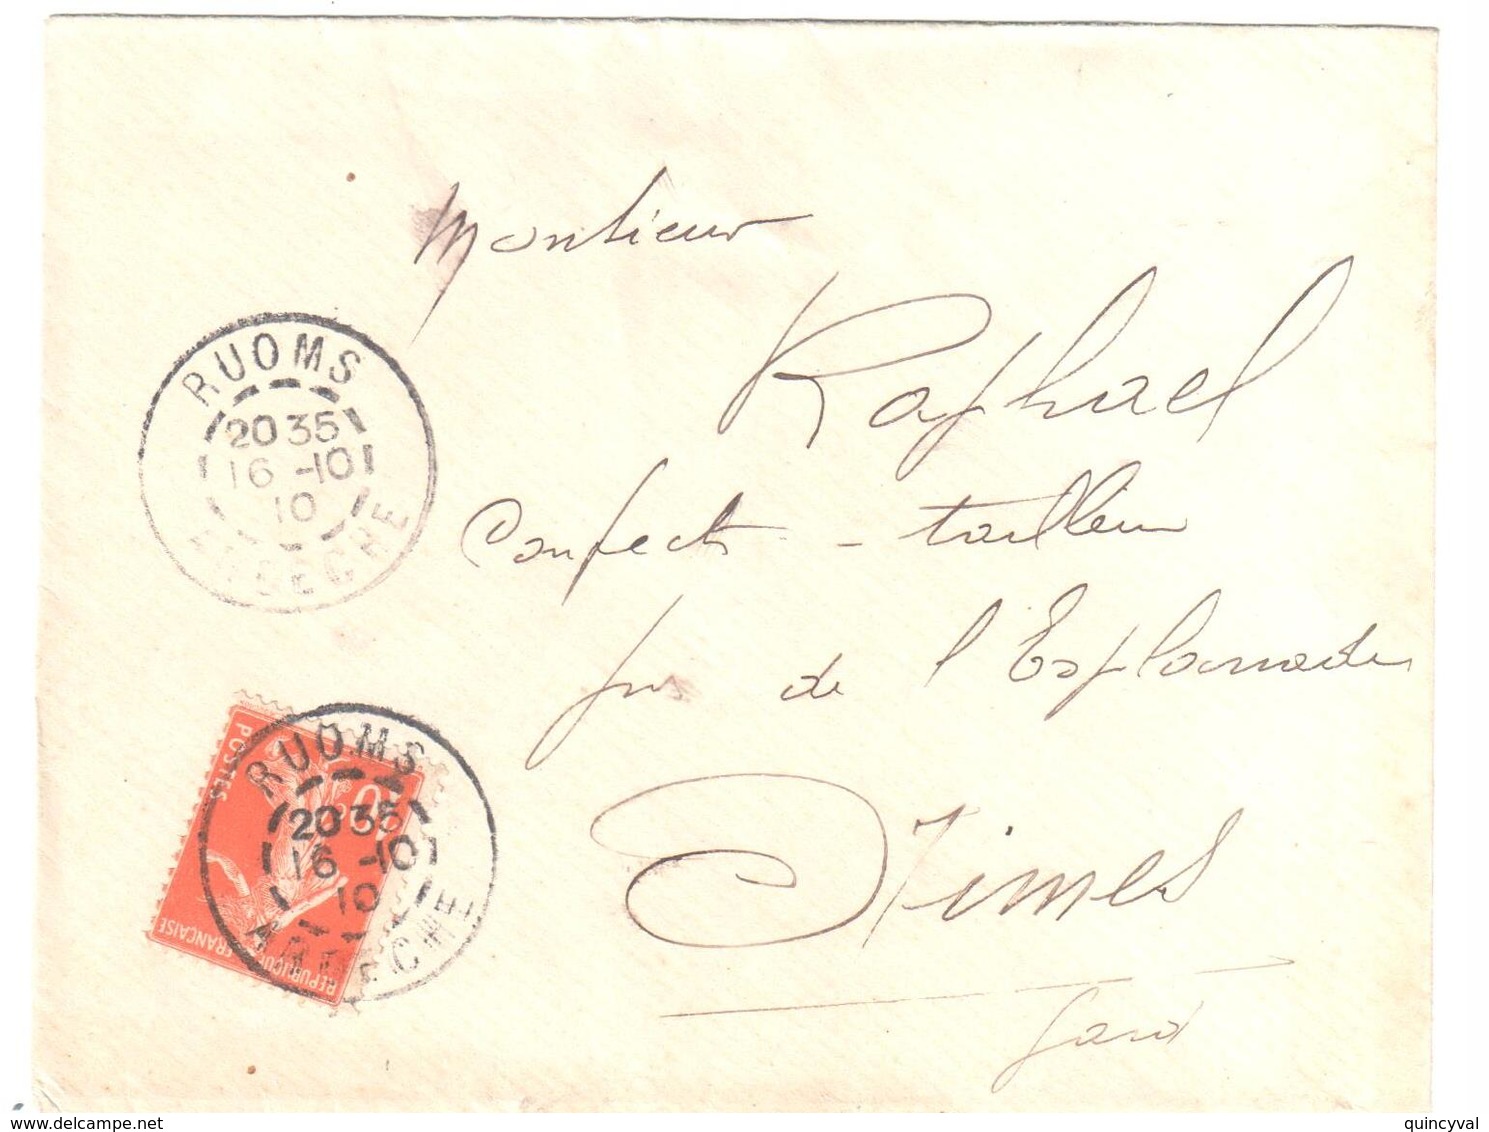 Monsieur
Raphael
Confect - tailleur
près de l'Esplanade
Nîmes
Gard
RUOMS
20 35
16 -10
10
ARDECHE
RUOMS
20 35
16 -10
10
ARDECHE
POSTES
10c
REPUBLIQUE FRANÇAISE
www.delcampe.net
quincyval